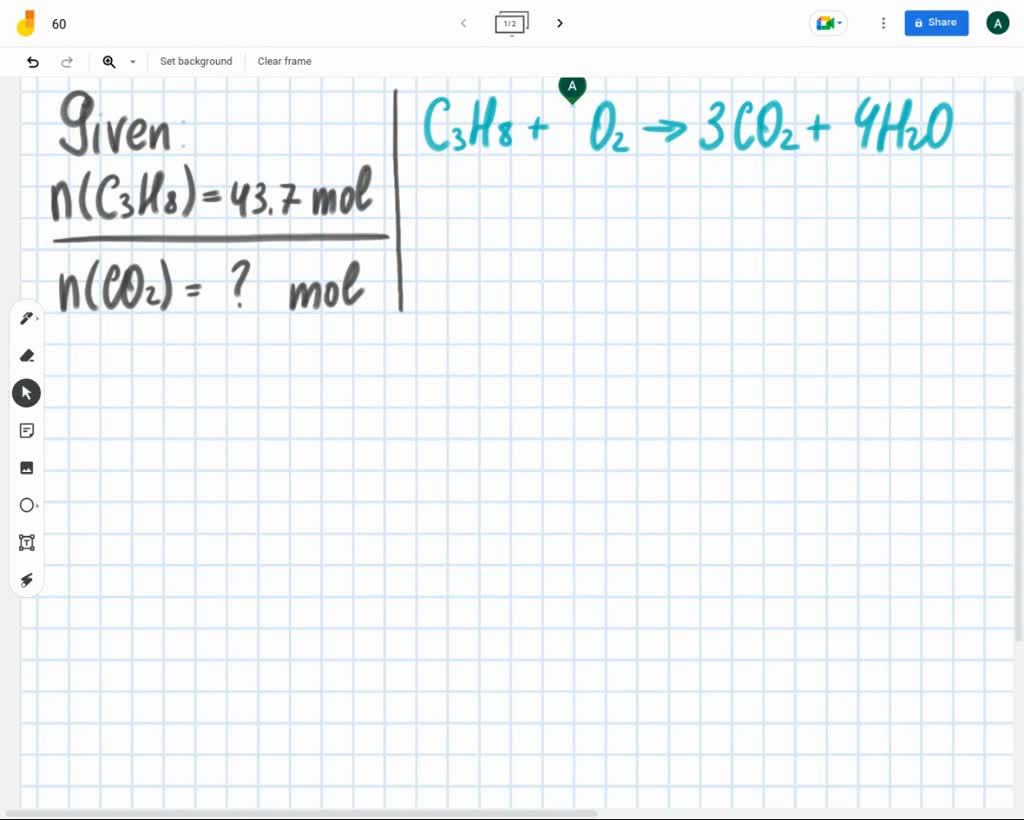 60
1/2
Share
A
Set background
Clear frame
A
Given:
n(C₃H₈) = 43.7 mol
n(CO₂) = ? mol
C₃H₈ + O₂ → 3CO₂ + 4H₂O